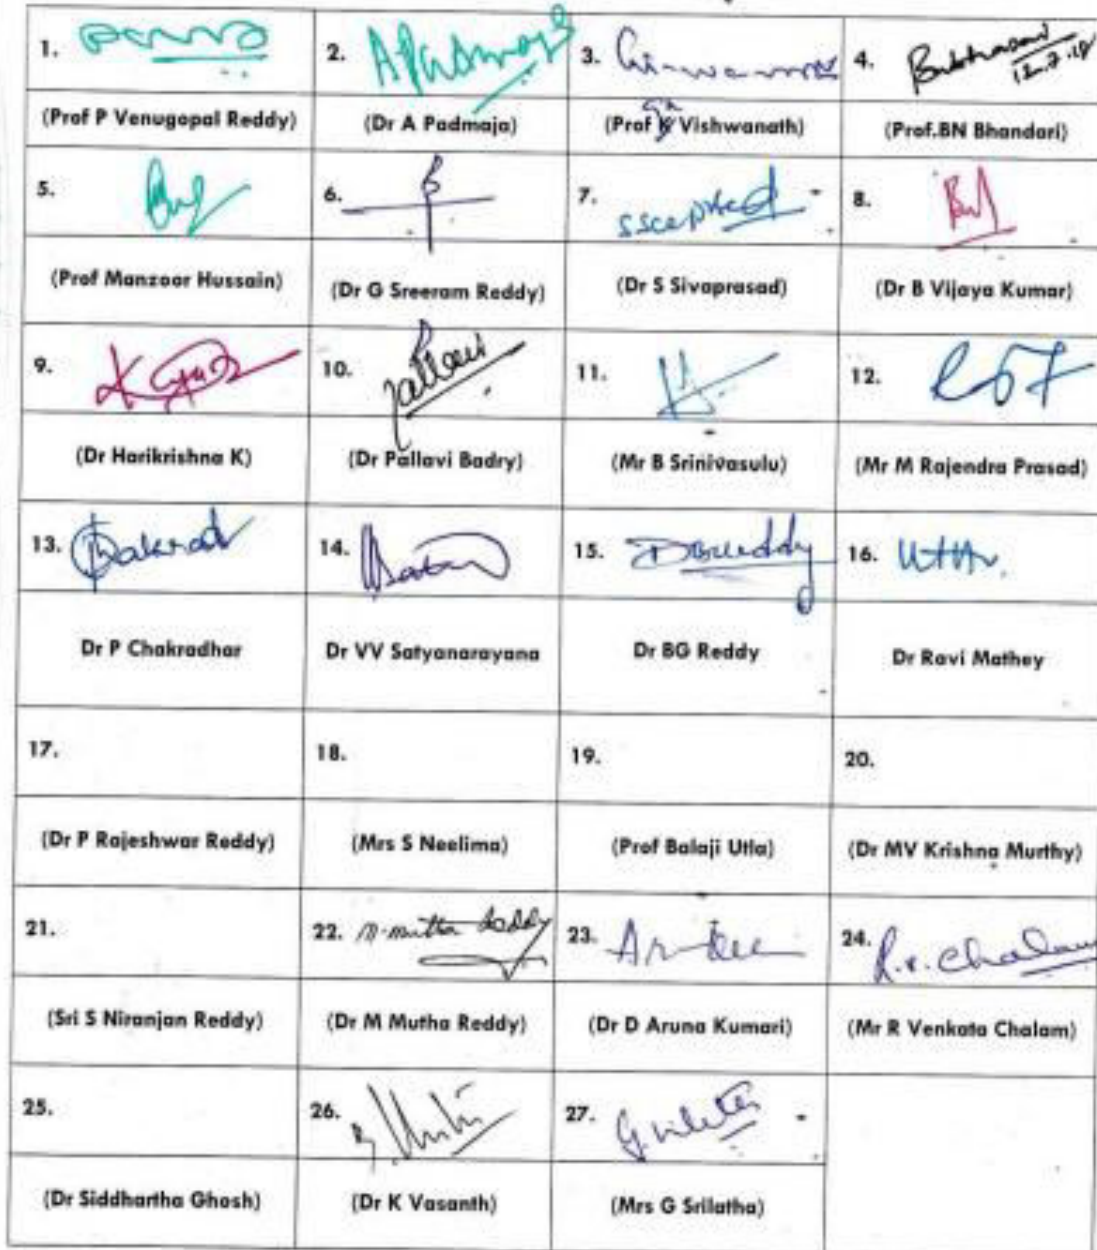 1. 2. A Padmaja 3. 4. 12.7.18
(Prof P Venugopal Reddy) (Dr A Padmaja) (Prof Ga Vishwanath) (Prof.BN Bhandari)
5. 6. 7. 8.
(Prof Manzoor Hussain) (Dr G Sreeram Reddy) (Dr S Sivaprasad) (Dr B Vijaya Kumar)
9. 10. Pallavi 11. 12.
(Dr Harikrishna K) (Dr Pallavi Badry) (Mr B Srinivasulu) (Mr M Rajendra Prasad)
13. 14. 15. 16.
Dr P Chakradhar Dr VV Satyanarayana Dr BG Reddy Dr Ravi Mathey
17. 18. 19. 20.
(Dr P Rajeshwar Reddy) (Mrs S Neelima) (Prof Balaji Utla) (Dr MV Krishna Murthy)
21. 22. M. Mutha Reddy 23. 24. R.V. Chalam
(Sri S Niranjan Reddy) (Dr M Mutha Reddy) (Dr D Aruna Kumari) (Mr R Venkata Chalam)
25. 26. 27.
(Dr Siddhartha Ghosh) (Dr K Vasanth) (Mrs G Srilatha)